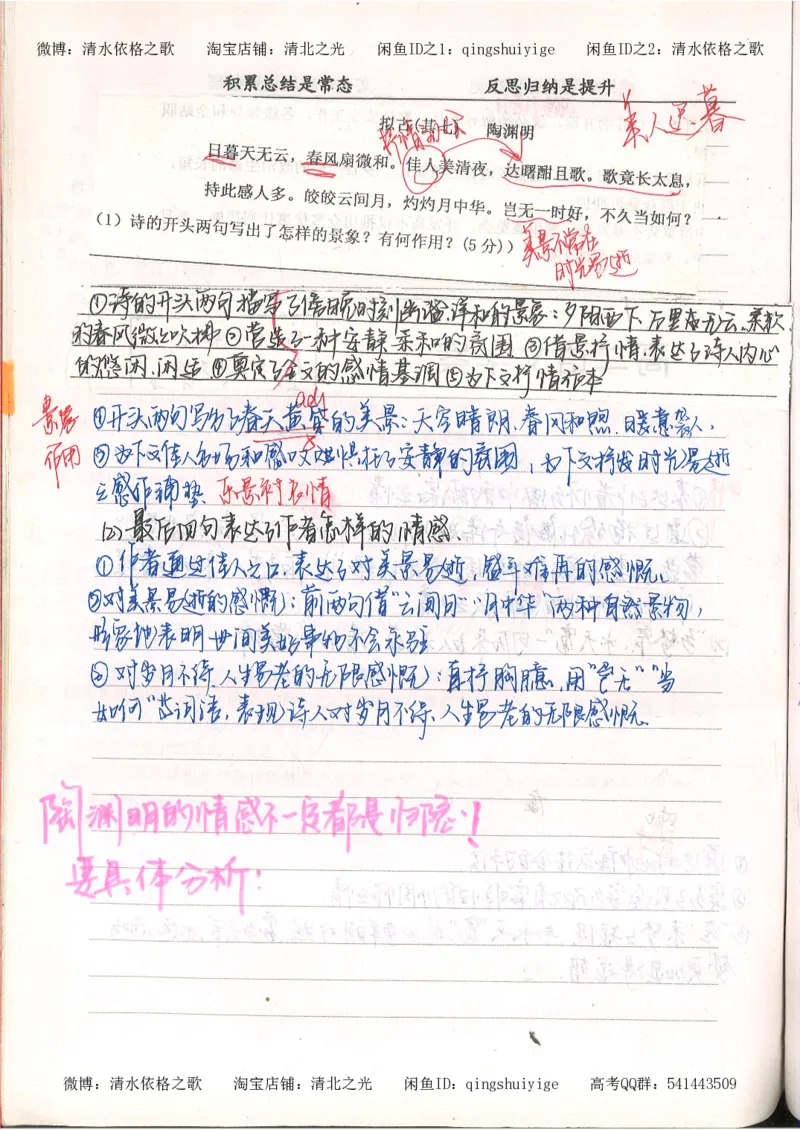 微博：清水依格之歌 淘宝店铺：清北之光 闲鱼ID之1：qingshuiyige 闲鱼ID之2：清水依格之歌
积累总结是常态 反思归纳是提升
美人迟暮
拟古(其七) 陶渊明
抒情主人公
日暮天无云，春风扇微和。佳人美清夜，达曙酣且歌。歌竟长太息，
持此感人多。皎皎云间月，灼灼月中华。岂无一时好，不久当如何？
(1) 诗的开头两句写出了怎样的景象？有何作用？(5分))
美景不常在
时光易逝
①诗的开头两句描写了傍晚时刻 的景象：夕阳西下,万里无云,柔软
的春风微微吹拂 ②营造了一种安静柔和的氛围 ③借景抒情,表达了诗人内心
的悠闲、闲适 ④奠定了全文的感情基调 ⑤为下文抒情作本
adj
景象 ①开头两句写出了春天黄昏的美景：天空晴朗,春风和煦,暖意袭人,
作用 ②为下文佳人出场和感叹提供了安静的氛围，为下文抒发时光易逝
之感作铺垫 乐景衬哀情
(2) 最后四句表达了作者怎样的情感.
①作者通过佳人之口,表达了对美景易逝,盛年难再的感慨。
②对美景易逝的感慨：前两句借“云间月”“月中华”两种自然景物，
形象地表明世间美好事物不会永驻
③对岁月不待,人生易老的无限感慨：直抒胸臆,用“岂无”“当
如何”等词语,表现诗人对岁月不待、人生易老的无限感慨。
陶渊明的情感不一定都是归隐!
要具体分析:
微博：清水依格之歌 淘宝店铺：清北之光 闲鱼ID：qingshuiyige 高考QQ群：541443509